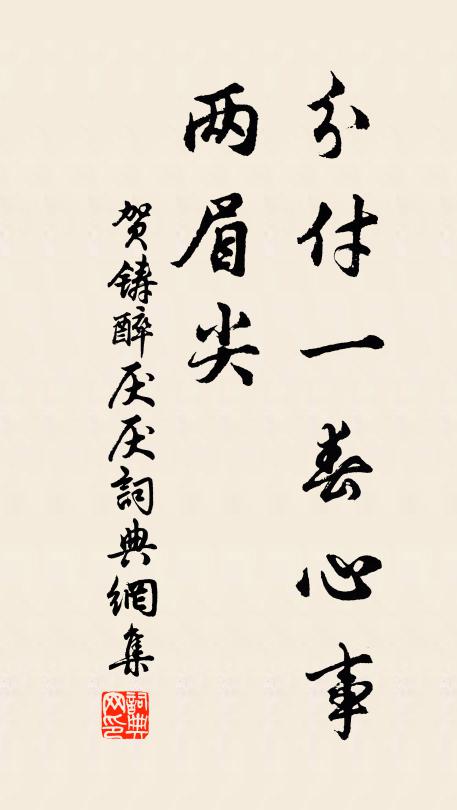 分付一春心事
两眉尖
贺铸醉厌厌詞典網集
詞典网印